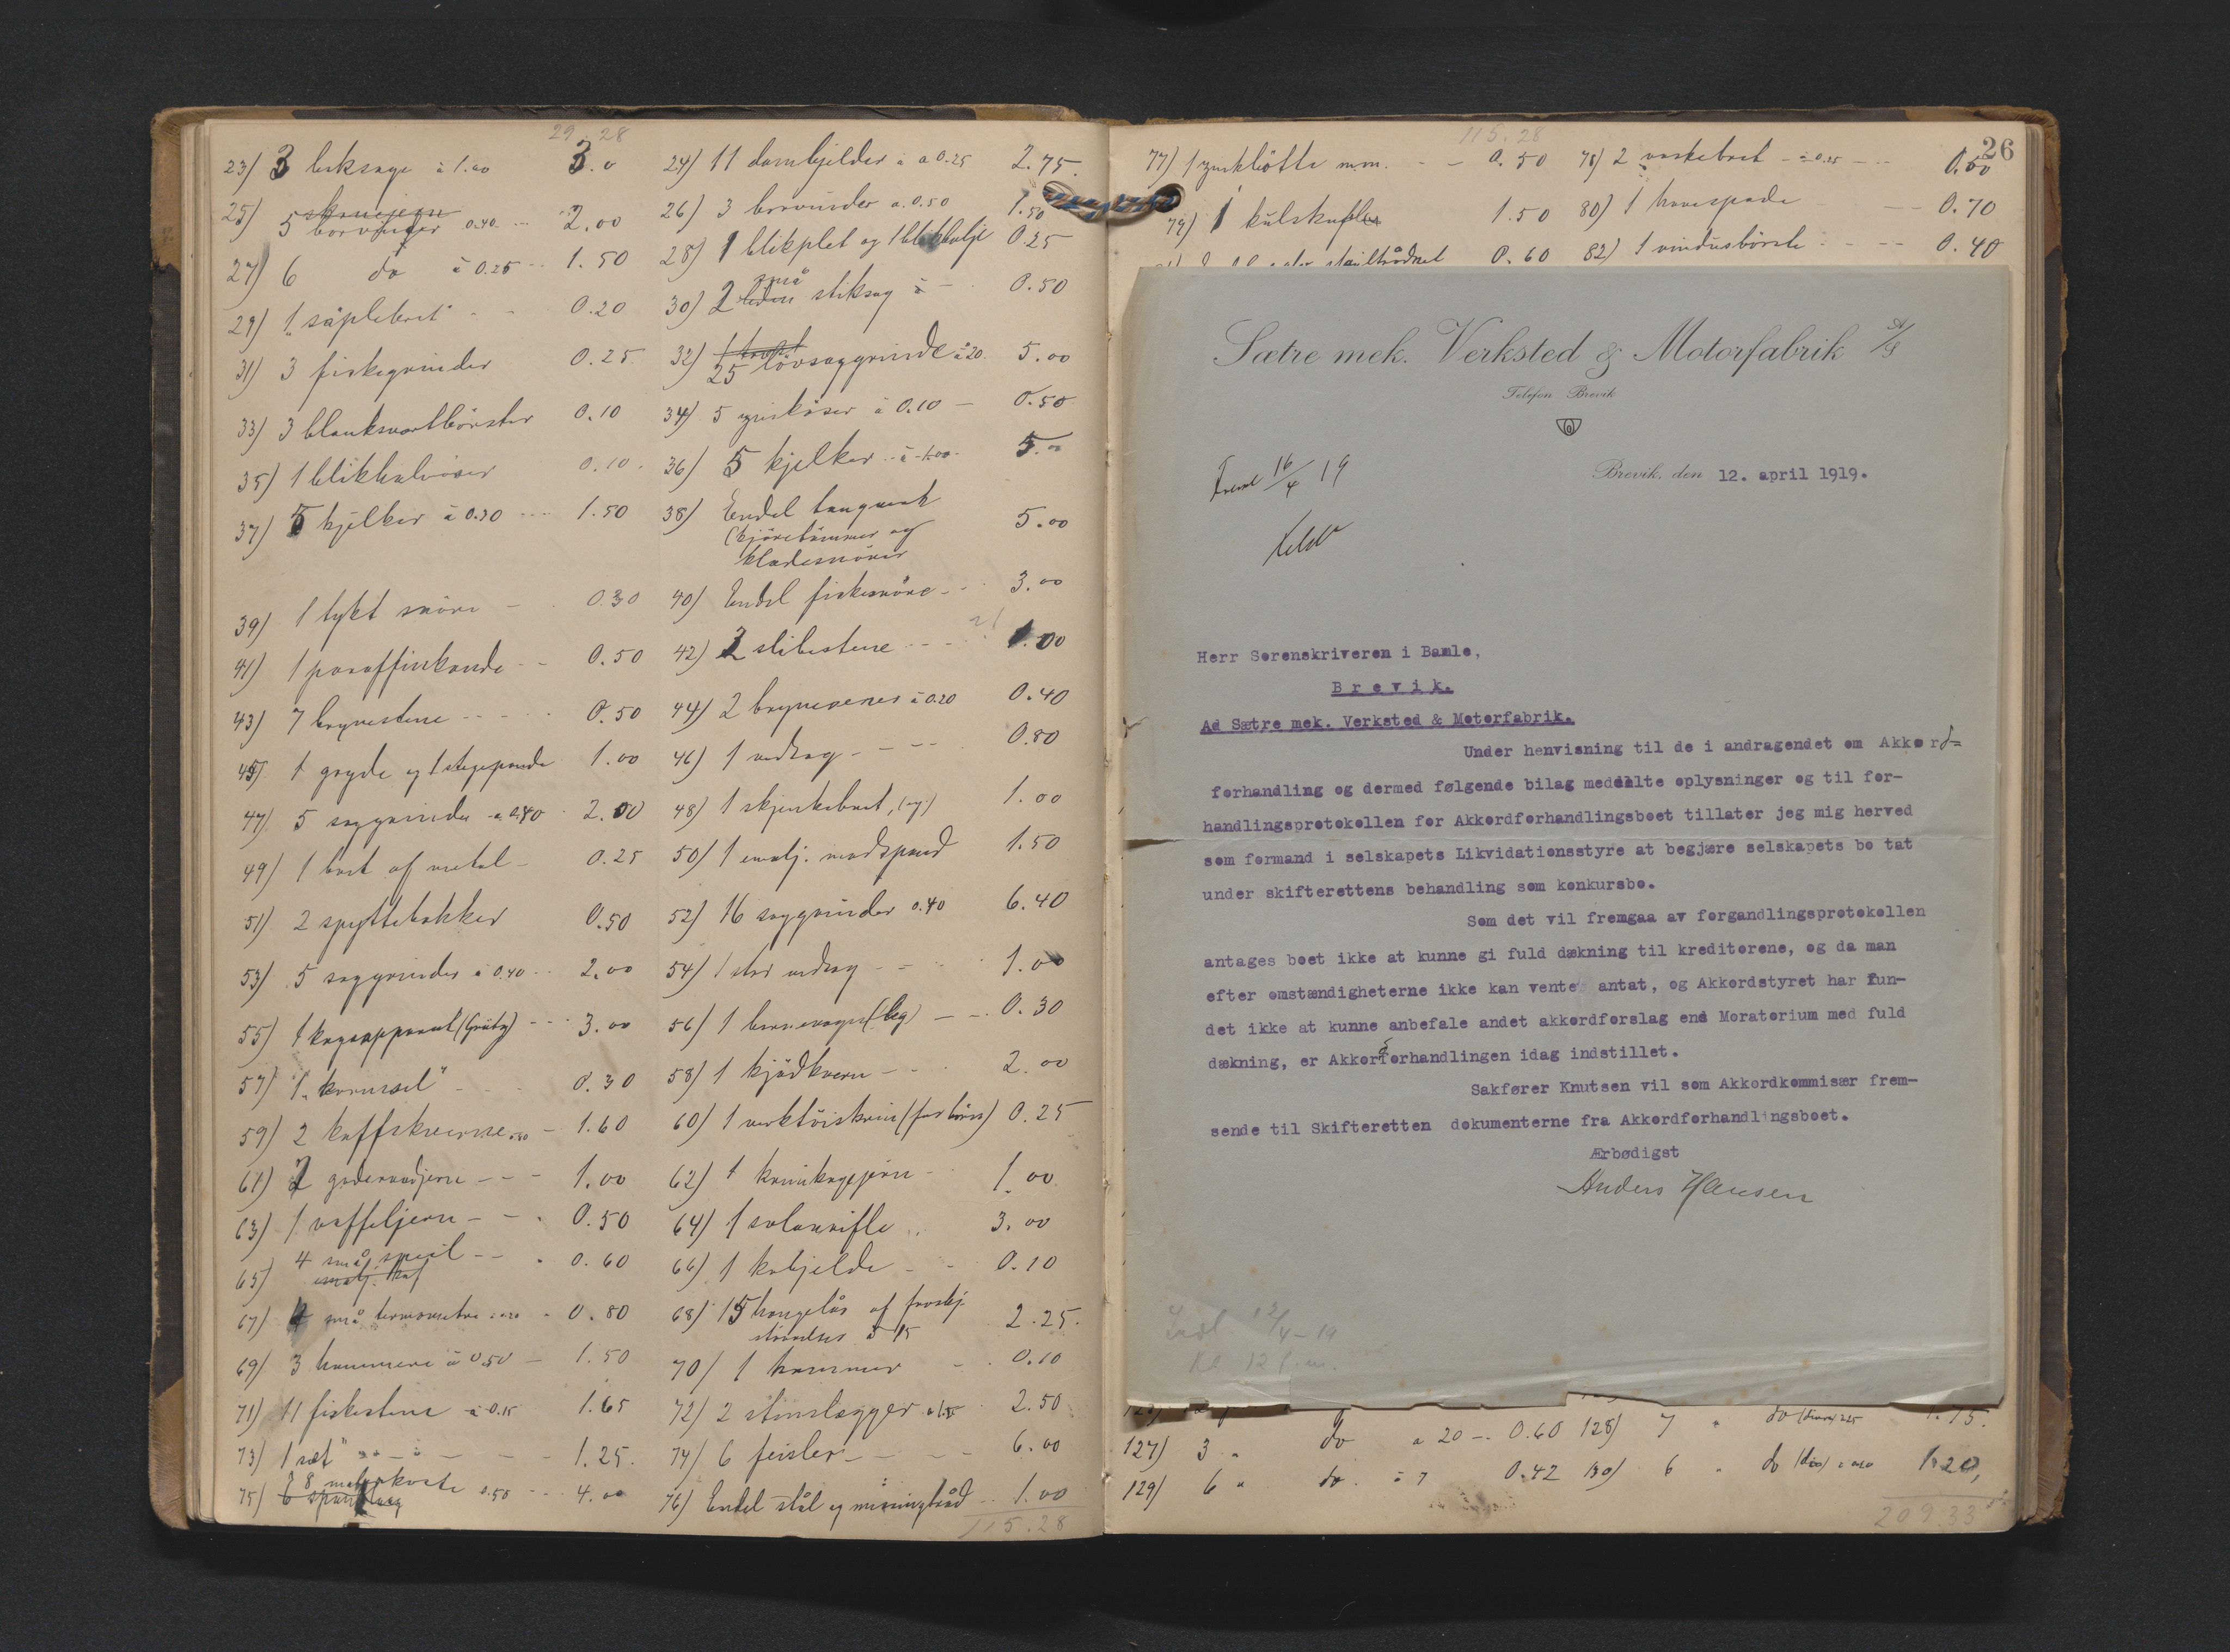 29.28
23) 3 løksage à 1.00 3.0 24) 11 dombjelder à a 0.25 2.75.
25) 5 borvinder 0.40 --- 2.00 26) 3 borvinder a. 0.50 1.50
27) 6 do à 0.25 -- 1.50 28) 1 blikplet og 1 0.25
29) 1 "såpebret" - - 0.20 30) 2 små stiksag à - 0.50
31) 3 fiskegrinder 0.25. 32) 25 lövsaggrinde à 20. 5.00
33) 3 blanksvartbörster 0.10 34) 5 à 0.10 — 0.50
35) 1 0.10. 36) 5 kjelker à 1.00. 5.00
37) 5 kjelker à 0.30 --- 1.50 38) Endel taugverk
(kjöretömmer og 5.00
kladesnörer
39) 1 tykt snöre - 0.30 40) Endel fiskesnöre - - 3.00
41) 1 paraffinkande - - 0.50 42) 2 slibestene --- 1.00
43) 7 brynestene ---- 0.50 44) 2 à 0.20 0.40
45) 1 gryde og 1 stegepande 1.00 46) 1 vedsag - - -- 0.80
47) 5 saggrinder à 0.40 2.00 48) 1 skjenkebret, 1.00
49) 1 bret af metal - 0.25 50) 1 emalj. spand 1.50
51) 2 spyttebakker 0.50 52) 16 saggrinder 0.40 6.40
53) 5 saggrinder à 0.40 -- 2.00 54) 1 stor vedsag - - - 1.00
55) 1 kogeapparat (Grötz) --- 3.00 56) 1 barnevogn (leg) — -. 0.30
57) 1 - - - 0.30 58) 1 kjödkvern - - - 2.00
59) 2 kaffekverne 0.80 - 1.60 60) 1 verktöiskrin (for börn) 0.25
61) 2 goderaadjern - - - 1.00 62) 1 krumkagejern - - 1.00
63) 1 vaffeljern - - . 0.50 64) 1 salonrifle .. 3.00
65) 4 små speil -- . 0.60 66) 1 kubjelde - - 0.10
67) 4 små termometre à 0.20 . 0.80 68) 15 hengelås af forskj.
störrelser à 15 2.25.
69) 3 hammere à 0.50 — 1.50 70) 1 hammer - . 0.10
71) 11 fiskestene à 0.15 1.65 72) 2 stenslægger à 1.25 2.50
73) 1 sæt " - - - - - 1.25. 74) 6 feisler - - - - 6.00
75) 8 malerkoste 0.50 --- 4.00 76) Endel stål og messingtråd .. 1.00
115.28
115.28
26
77) 1 zinkbötte m.m. - - 0.50 78) 2 vaskebret - à 0.25 -- 0.50
79) 1 kulskuffe 1.50 80) 1 havespade -- 0.70
ståltrådnet 0.60 82) 1 vindusbörste - - -- 0.40
Sætre mek. Verksted & Motorfabrik A/S
Telefon Brevik
Brevik, den 12. april 1919.
Freml 16/4 19
Herr Sorenskriveren i Bamle,
Brevik.
Ad Sætre mek. Verksted & Motorfabrik.
Under henvisning til de i andragendet om Akkord=
forhandling og dermed følgende bilag meddelte oplysninger og til for-
handlingsprotokollen for Akkordforhandlingsboet tillater jeg mig herved
som formand i selskapets Likvidationsstyre at begjære selskapets bo tat
under skifterettens behandling som konkursbo.
Som det vil fremgaa av forgandlingsprotokollen
antages boet ikke at kunne gi fuld dækning til kreditorene, og da man
efter omstændigheterne ikke kan vente antat, og Akkordstyret har fun-
det ikke at kunne anbefale andet akkordforslag end Moratorium med fuld
dækning, er Akkordforhandlingen idag indstillet.
Sakfører Knutsen vil som Akkordkommisær frem-
sende til Skifteretten dokumenterne fra Akkordforhandlingsboet.
Ærbødigst
Anders Hansen
12/4-19
Kl 12 f.m.
do 128) 7 " do 225 1.75.
127) 3 " do a 20 -. 0.60
129) 6 " do. à 7 0.42 130) 6 " do à 0.20 1.20,
209.33